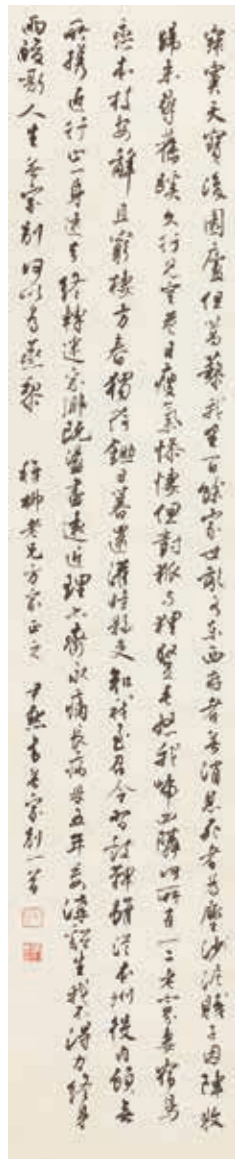 寂寞天寶後園廬但蒿藜我里百餘家世亂各東西存者無消息死者為塵沙泥賤子因陣敗
歸來尋舊蹊久行見空巷日瘦氣慘悽但對狐與狸豎毛怒我啼四隣何所有一二老寡妻宿鳥
戀本枝安辭且窮棲方春獨荷鋤日暮還灌畦縣吏知我至召令習鼓鞞雖從本州役內顧無
所攜近行止一身遠去終轉迷家鄉既盪盡遠近理亦齊永痛長病母五年委溝谿生我不得力終身
兩酸嘶人生無家別何以為蒸黎 柳老兄方家正之 尹默書無家別一首